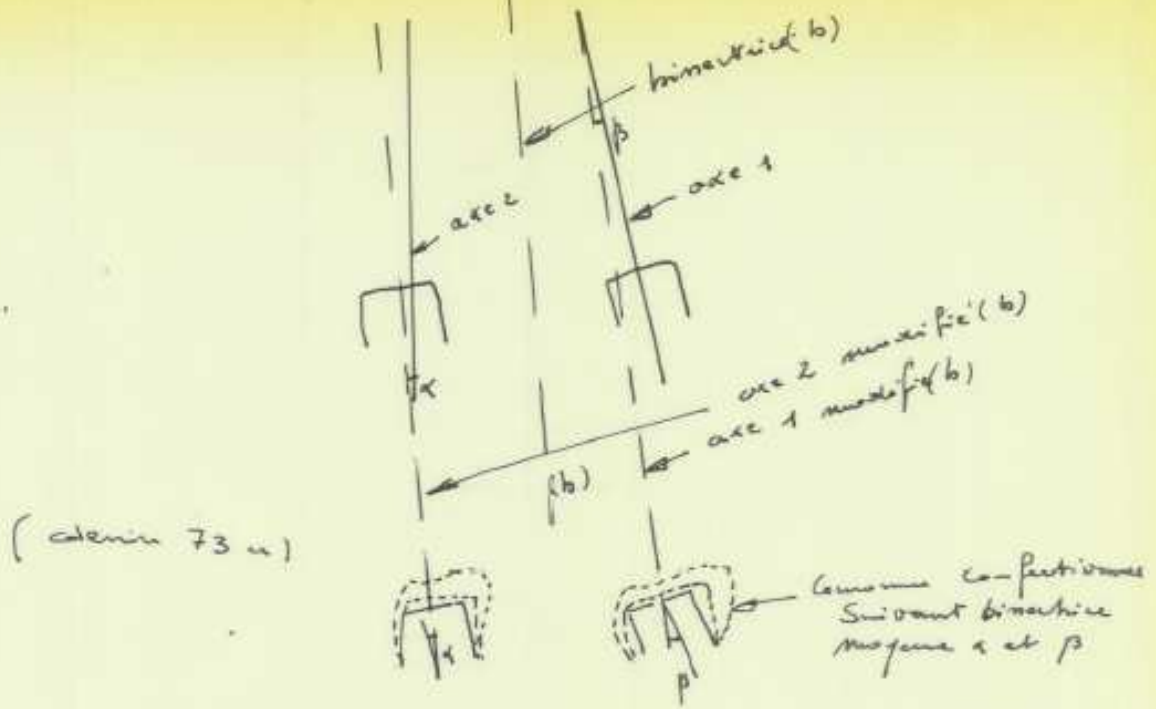 bissectrice (b)
β
axe 1
axe 2
α
axe 2 modifié (b)
axe 1 modifié (b)
(b)
73
Couronne confectionnée
Suivant bissectrice
moyenne α et β
α
β